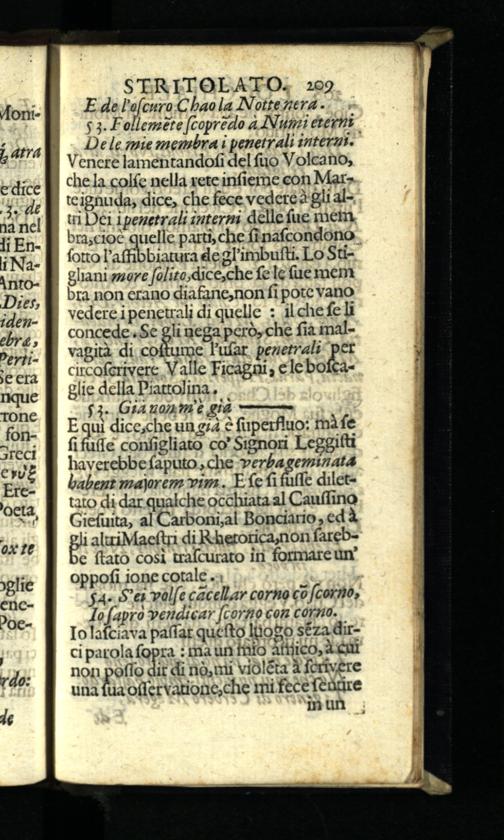 Moni-
atra
e dice
3. de
na nel
di En-
li Na-
Anto-
Dies,
iden-
ebra,
Perti-
Se era
nque
rrone
fon-
Greci
e νὺξ
Ere-
Poeta,
ox te
oglie
ene-
Poe-
rdo:
de
STRITOLATO. 209
E de l'oſcuro Chao la Notte nera.
53. Follemẽte ſcoprẽdo à Numi eterni
De le mie membra i penetrali interni.
Venere lamentandoſi del ſuo Volcano,
che la colſe nella rete inſieme con Mar-
te ignuda, dice, che fece vedere à gli al-
tri Dei i penetrali interni delle ſue mem
bra,cioè quelle parti,che ſi naſcondono
ſotto l'affibbiatura de gl'imbuſti. Lo Sti-
gliani more ſolito,dice,che ſe le ſue mem
bra non erano diafane,non ſi pote vano
vedere i penetrali di quelle : il che ſe li
concede. Se gli nega però, che ſia mal-
vagità di coſtume l'uſar penetrali per
circoſcrivere Valle Ficagni, e le boſca-
glie della Piattolina.
53. Già non m'è già
E qui dice,che un già è ſuperfluo: mà ſe
ſi fuſſe conſigliato co' Signori Leggiſti
haverebbe ſaputo, che verba geminata
habent majorem vim. E ſe ſi fuſſe dilet-
tato di dar qualche occhiata al Cauſſino
Gieſuita, al Carboni,al Bonciario, ed à
gli altri Maeſtri di Rhetorica,non ſareb-
be ſtato così traſcurato in formare un'
oppoſi ione cotale.
54. S'ei volſe cãcellar corno cõ ſcorno,
Io ſaprò vendicar ſcorno con corno.
Io laſciava paſſar queſto luogo sẽza dir-
ci parola ſopra : ma un mio amico, à cui
non poſſo dir di nò,mi violẽta à ſcrivere
una ſua oſſervatione,che mi fece ſentire
in un